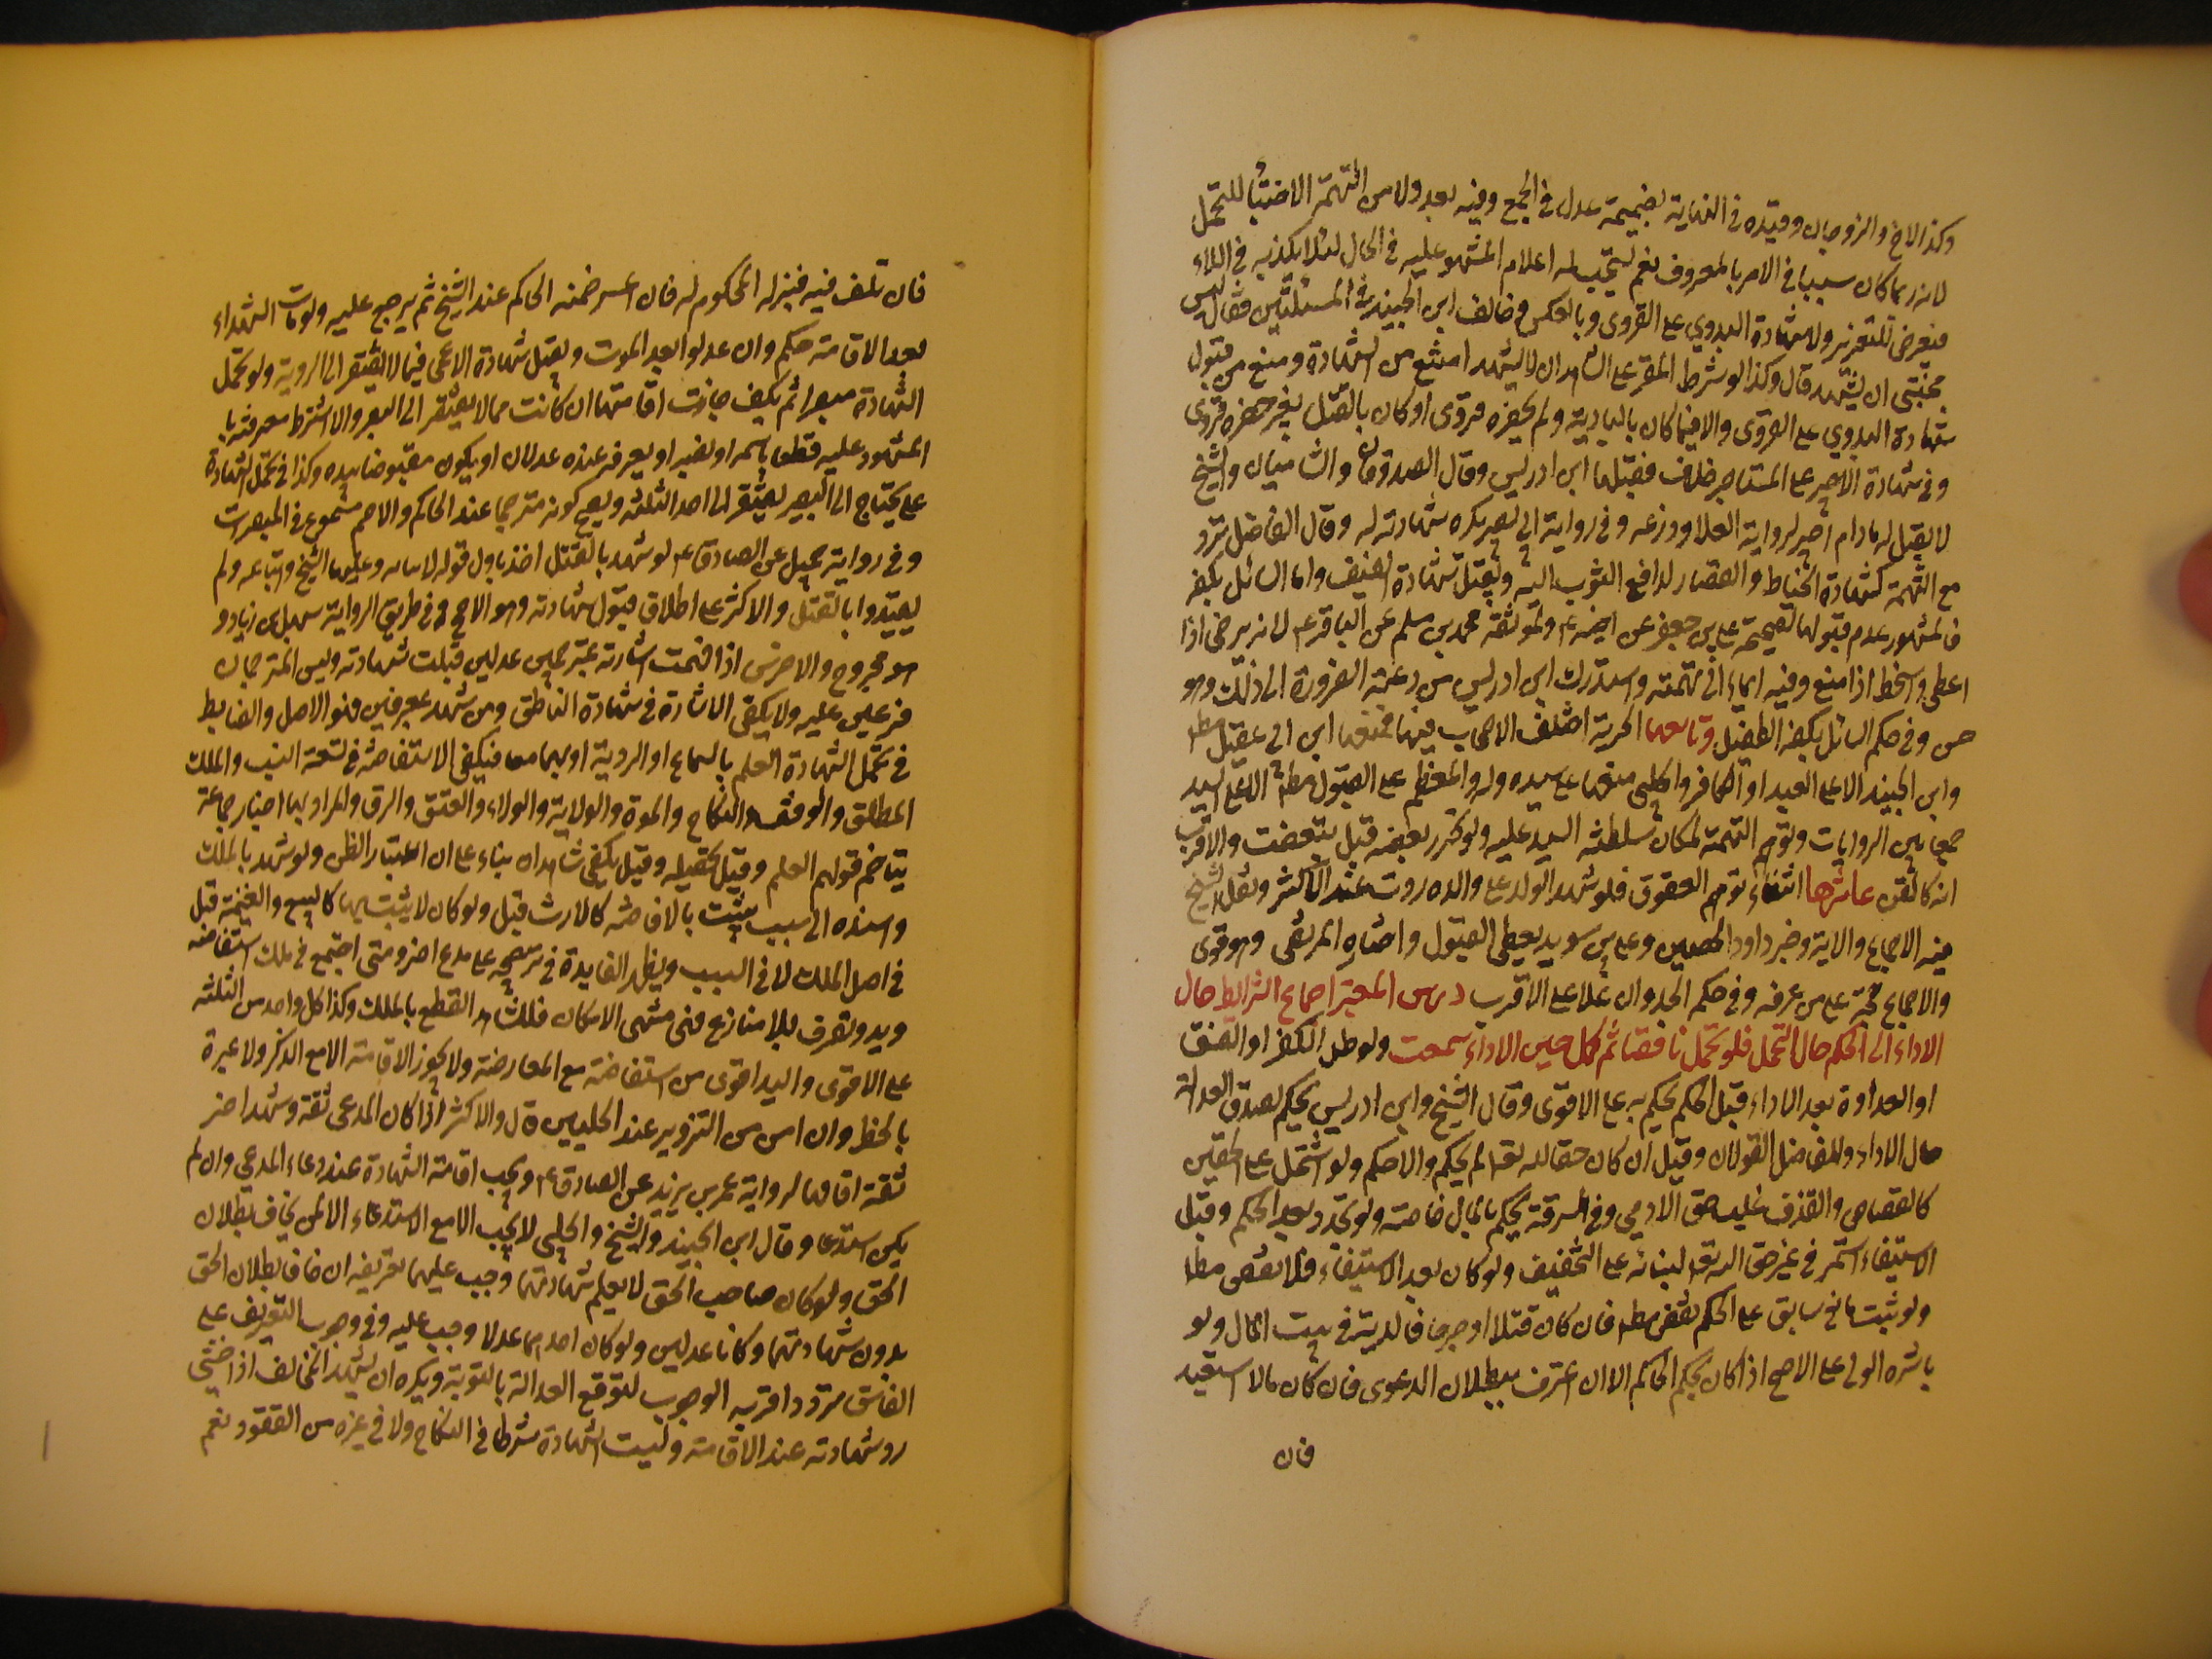 وكذا الاخ والزوجان وقيده في النهاية بضميمة عدل في الجميع وفيه بعد ولا من التهمة الاختباء للتحمل
لانه ربما كان سببا في الامر بالمعروف نعم يستحب له اعلام المشهود عليه في الحال لئلا يكذبه في الملاء
فيعرض للتعزير ولا شهادة البدوي على القروي وبالعكس وخالف ابن الجنيد في المسئلتين فقال ليس
لمختبئ ان يشهد قال وكذا لو شرط المقر على الشاهد ان لا يشهد امتنع من الشهادة ومنع من قبول
شهادة البدوي على القروي والا فيما كان بالبادية ولم يحضره قروى او كان بالقتل بغير حضرة قروى
وفي شهادة الاجير على المستاجر خلاف فقبلها ابن ادريس وقال الصدوقان والشاميان والشيخ
لا يقبل له ما دام اجيرا لرواية العلا وزرعه وفي رواية ابي بصير يكره شهادته له وقال الفاضل ترد
مع التهمة كشهادة الخياط والقصار لدافع الثوب اليه ويقبل شهادة الضيف واما السائل بكفه
فالمشهور عدم قبولها لصحيحة علي بن جعفر عن اخيه ع ولموثقة محمد بن مسلم عن الباقر ع لانه يرضى اذا
اعطى ويسخط اذا منع وفيه ايماء الى تهمته واستدرك ابن ادريس من دعته الضرورة الى ذلك وهو
حسن وفي حكم السائل بكفه الطفيلي وتاسعها الحرية اختلف الاصحاب فيها فمنعها ابن ابي عقيل مطلقا
وابن الجنيد الا على العبد او الكافر والحلبي منعها على سيده وله والمعظم على القبول مطلقا الا على السيد
جمعا بين الروايات وتوهم التهمة لمكان سلطنة السيد عليه ولو تحرر بعضه قبل تبعضت والاقرب
انه كالقن عاشرها انتفاء توهم العقوق فلو شهد الولد على والده ردت عند الاكثر ونقل الشيخ
فيه الاجماع والاية وخبر داود بن الحصين وعلي بن سويد يعطى القبول واختاره المرتضى وهو قوى
والاجماع حجة على من عرفه وفي حكم الجد وان علا على الاقرب درس المعتبر اجماع الشرايط حال
الاداء الى الحكم حال التحمل فلو تحمل ناقصا ثم كمل حين الاداء سمعت ولو طرأ الكفر او الفسق
او العداوة بعد الاداء قبل الحكم يحكم به على الاقوى وقال الشيخ وابن ادريس يحكم لصدق العدالة
حال الاداء وللفاضل القولان وقيل ان كان حقا لله تعالى لم يحكم والا حكم ولو اشتمل على الحقين
كالقصاص والقذف غلب حق الادمي وفي السرقة يحكم بالمال خاصة ولو تجدد بعد الحكم وقبل
الاستيفاء استمر في غير حق الله تعالى لبنائه على التخفيف ولو كان بعد الاستيفاء فلا نقض مطلقا
ولو ثبت مانع سابق على الحكم نقض مطلقا فان كان قتلا او جرحا فالدية في بيت المال ولو
باشره الولي على الاصح اذا كان بحكم الحاكم الا ان اعترف ببطلان الدعوى فان كان مالا استعيد
فان
فان تلف فيه فنزله المحكوم له فان اعسر ضمنه الحاكم عند الشيخ ثم يرجع عليه ولو مات الشهداء
بعد الاقامة حكم وان عدلوا بعد الموت ويقبل شهادة الاعمى فيما لا يفتقر الى الروية ولو تحمل
الشهادة مبصرا ثم يكف جازت اقامتها ان كانت مما لا يفتقر الى البصر والا اشترط معرفته با
المشهود عليه قطعا باسمه او نسبه او يعرفه عنده عدلان او يكون مقبوضا بيده وكذا في تحمل الشهادة
على يحتاج الى البصر يفتقر الى احد الثلثه ويصح كونه مترجما عند الحاكم والاصم مسموع في المبصرات
وفي رواية جميل عن الصادق ع لو شهد بالقتل اخذ باول قوله لا ثانيه وعليها الشيخ واتباعه ولم
يقيدوا بالقتل والاكثر على اطلاق قبول شهادته وهو الاصح وفي طريق الرواية سهل بن زياد و
هو مجروح والاخرس اذا فهمت اشارته بمترجمين عدلين قبلت شهادته وليس المترجمان
فرعين عليه ولا يكفى الاشارة في شهادة الناطق ومن شهد بمعرفين فهو الاصل والضابط
في تحمل الشهادة العلم بالسماع او الروية او بهما معا فيكفى الاستفاضة في تسعة النسب والملك
المطلق والوقف والنكاح والموت والولاية والولاء والعتق والرق والمراد بها اخبار جماعة
يتاخم قولهم العلم وقيل يحصله وقيل يكفى شاهدان بناء على ان اعتبار الظن ولو شهد بالملك
واسنده الى سبب يثبت بالافاضة كالارث قبل ولو كان لا يثبت بها كالبيع والغنيمة قبل
في اصل الملك لا في السبب ويظهر الفايدة في ترجيحه على مدع اخر ومتى اجتمع في ملك استفاضه
ويد وتصرف بلا منازع فهى منتهى الامكان فللشاهد القطع بالملك وكذا كل واحد من الثلثه
على الاقوى واليد اقوى من استفاضة مع المعارضة ولا يجوز الاقامة الا مع الذكر ولا عبرة
بالخط وان امن من التزوير عند الحلبيين قال والاكثر اذا كان المدعى ثقة وشهد اخر
ثقة اقامها لرواية عمر بن يزيد عن الصادق ع ويجب اقامة الشهادة عند دعاء المدعي وان لم
يكن استدعا وقال ابن الجنيد والشيخ والحلبي لا يجب الا مع الاستدعاء الا لمن يخاف بطلان
الحق ولو كان صاحب الحق لا يعلم شهادتهما وجب عليهما تعريفه ان خافا بطلان الحق
بدون شهادتهما وكانا عدلين ولو كان احدهما عدلا وجب عليه وفي وجوب التعريف على
الفاسق تردد اقربه الوجوب لتوقع العدالة بالتوبة ويكره ان يشهد المخالف اذا خشى
رد شهادته عند الاقامة وليست الشهادة شرطا في النكاح ولا في غيره من العقود نعم